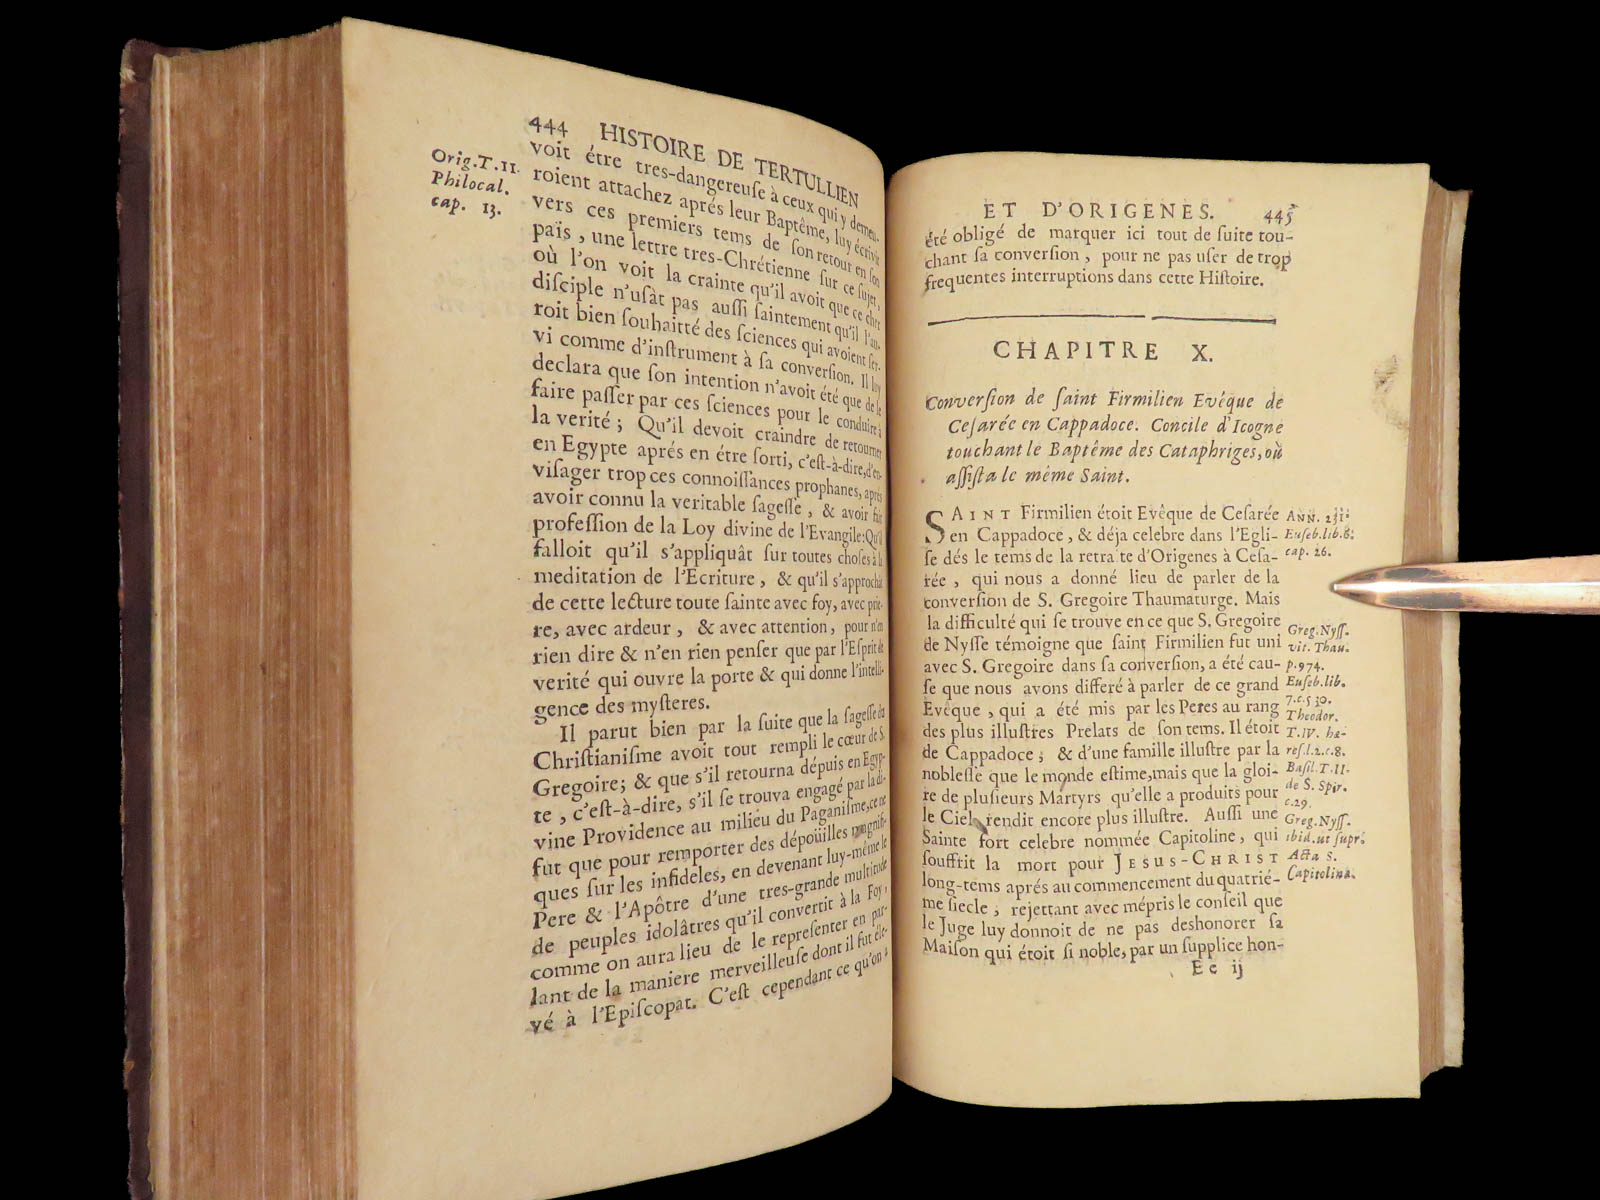 444 HISTOIRE DE TERTULLIEN
Orig. T. 11.
Philocal.
cap. 13.
voit étre tres-dangereuſe à ceux qui y demeu-
roient attachez aprés leur Baptême, luy écrivit
vers ces premiers tems de ſon retour en ſon
païs, une lettre tres-Chrétienne ſur ce ſujet,
où l'on voit la crainte qu'il avoit que ce cher
diſciple n'uſât pas auſſi ſaintement qu'il l'au-
roit bien ſouhaitté des ſciences qui avoient ſer-
vi comme d'inſtrument à ſa converſion. Il luy
declara que ſon intention n'avoit été que de le
faire paſſer par ces ſciences pour le conduire à
la verité; Qu'il devoit craindre de retourner
en Egypte aprés en étre ſorti, c'eſt-à-dire, d'en-
viſager trop ces connoiſſances prophanes, aprés
avoir connu la veritable ſageſſe, & avoir fait
profeſſion de la Loy divine de l'Evangile: Qu'il
falloit qu'il s'appliquât ſur toutes choſes à la
meditation de l'Ecriture, & qu'il s'approchât
de cette lecture toute ſainte avec foy, avec prie-
re, avec ardeur, & avec attention, pour n'en
rien dire & n'en rien penſer que par l'Eſprit de
verité qui ouvre la porte & qui donne l'intelli-
gence des myſteres.
Il parut bien par la ſuite que la ſageſſe du
Chriſtianiſme avoit tout rempli le cœur de S.
Gregoire; & que s'il retourna dépuis en Egyp-
te, c'eſt-à-dire, s'il ſe trouva engagé par la di-
vine Providence au milieu du Paganiſme, ce ne
fut que pour remporter des dépoüilles magnifi-
ques ſur les infideles, en devenant luy-même le
Pere & l'Apôtre d'une tres-grande multitude
de peuples idolâtres qu'il convertit à la Foy,
comme on aura lieu de le repreſenter en par-
lant de la maniere merveilleuſe dont il fut éle-
vé à l'Epiſcopat. C'eſt cependant ce qu'on a
ET D'ORIGENES. 445
été obligé de marquer ici tout de ſuite tou-
chant ſa converſion, pour ne pas uſer de trop
frequentes interruptions dans cette Hiſtoire.
CHAPITRE X.
Converſion de ſaint Firmilien Evêque de
Ceſarée en Cappadoce. Concile d'Icogne
touchant le Baptême des Cataphriges, où
aſſiſta le même Saint.
SAINT Firmilien étoit Evêque de Ceſarée
en Cappadoce, & déja celebre dans l'Egli-
ſe dés le tems de la retraite d'Origenes à Ceſa-
rée, qui nous a donné lieu de parler de la
converſion de S. Gregoire Thaumaturge. Mais
la difficulté qui ſe trouve en ce que S. Gregoire
de Nyſſe témoigne que ſaint Firmilien fut uni
avec S. Gregoire dans ſa converſion, a été cau-
ſe que nous avons differé à parler de ce grand
Evêque, qui a été mis par les Peres au rang
des plus illuſtres Prelats de ſon tems. Il étoit
de Cappadoce; & d'une famille illuſtre par la
nobleſſe que le monde eſtime, mais que la gloi-
re de pluſieurs Martyrs qu'elle a produits pour
le Ciel rendit encore plus illuſtre. Auſſi une
Sainte fort celebre nommée Capitoline, qui
ſouffrit la mort pour JESUS-CHRIST
long-tems aprés au commencement du quatrié-
me ſiecle, rejettant avec mépris le conſeil que
le Juge luy donnoit de ne pas deshonorer ſa
Maiſon qui étoit ſi noble, par un ſupplice hon-
Ee ij
ANN. 231.
Euſeb. lib. 6.
cap. 26.
Greg. Nyſſ.
vit. Thau.
p. 974.
Euſeb. lib.
7. c. 5 30.
Theodor.
T. IV. hæ-
reſ. l. 2. c. 8.
Baſil. T. II.
de S. Spir.
c. 29.
Greg. Nyſſ.
ibid. ut ſuprà
Acta S.
Capitolinæ.